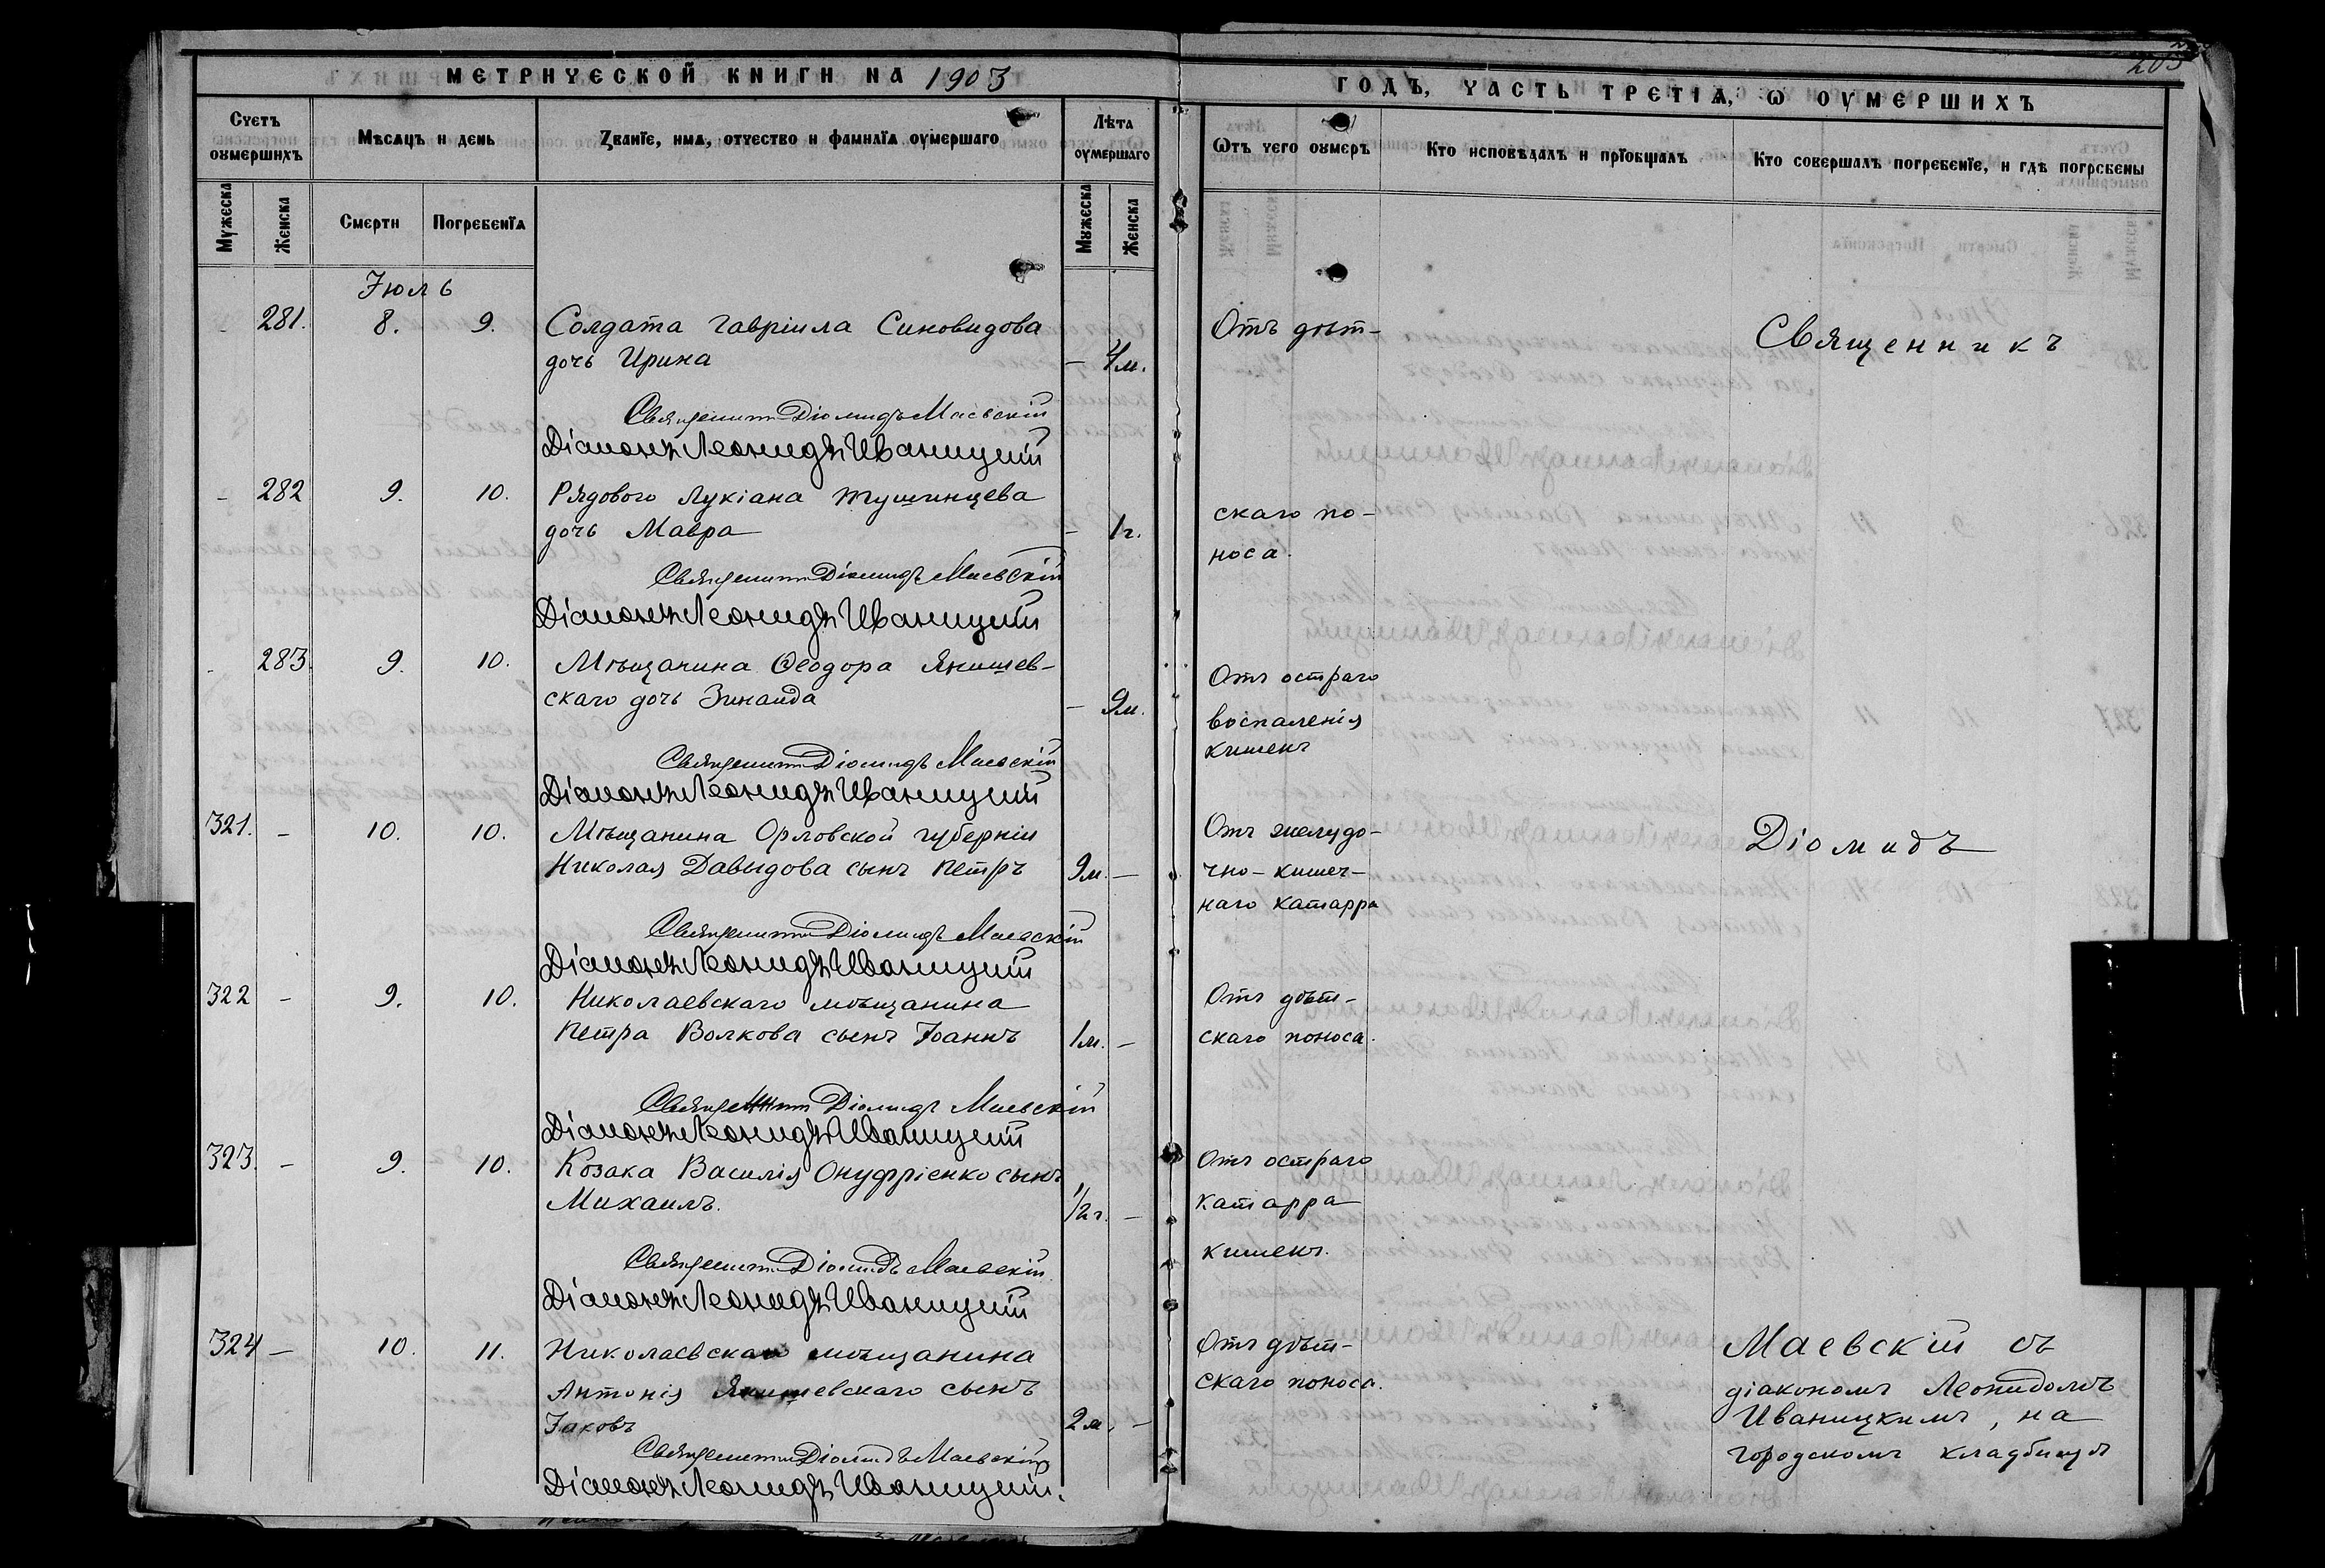 МЕТРИЧЕСКОЙ КНИГИ НА 1903
Счетъ оумершихъ
Мѣсяцъ и день
Званїе, имя, отчество и фамилїя оумершаго
Лѣта оумершаго
Мужеска
Женска
Смерти
Погребенїя
Мужеска
Женска
Іюль
281. 8. 9. Солдата Гавріила Синовидова
дочь Ирина – 4 м.
Священникъ Діомидъ Маевскій
Діаконъ Леонидъ Иваницкій
– 282 9. 10. Рядового Лукіана Тушинцева
дочь Мавра – 1 г.
Священникъ Діомидъ Маевскій
Діаконъ Леонидъ Иваницкій
283. 9. 10. Мѣщанина Ѳеодора Янишев-
скаго дочь Зинаида – 9 м.
Священникъ Діомидъ Маевскій
Діаконъ Леонидъ Иваницкій
321. – 10. 10. Мѣщанина Орловской губерніи
Николая Давыдова сынъ Петръ 9 м. –
Священникъ Діомидъ Маевскій
Діаконъ Леонидъ Иваницкій
322 – 9. 10. Николаевскаго мѣщанина
Петра Волкова сынъ Іоаннъ 1 м. –
Священникъ Діомидъ Маевскій
Діаконъ Леонидъ Иваницкій
323. – 9. 10. Козака Василія Онуфріенко сынъ
Михаилъ. 1/2 г. –
Священникъ Діомидъ Маевскій
Діаконъ Леонидъ Иваницкій
324 – 10. 11. Николаевскаго мѣщанина
Антонія Янишевскаго сынъ
Іаковъ 2 м. –
Священникъ Діомидъ Маевскій
Діаконъ Леонидъ Иваницкій.
ГОДЪ, ЧАСТЬ ТРЕТІЯ, Ѡ ОУМЕРШИХЪ
Ѿтъ чего оумеръ
Кто исповѣдалъ и прїобщалъ
Кто совершалъ погребенїе, и гдѣ погребены
Отъ дѣт-
Священникъ
скаго по-
носа.
Отъ остраго
воспаленія
кишекъ
Отъ желудо-
чно-кишеч-
наго катарра
Діомидъ
Отъ дѣт-
скаго поноса.
Отъ остраго
катарра
кишекъ.
Отъ дѣт-
скаго поноса.
Маевскій съ
діакономъ Леонидомъ
Иваницкимъ, на
городскомъ кладбищѣ